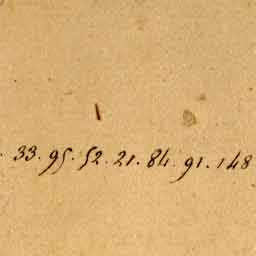 . 33. 95. 52. 21. 84. 91. 148